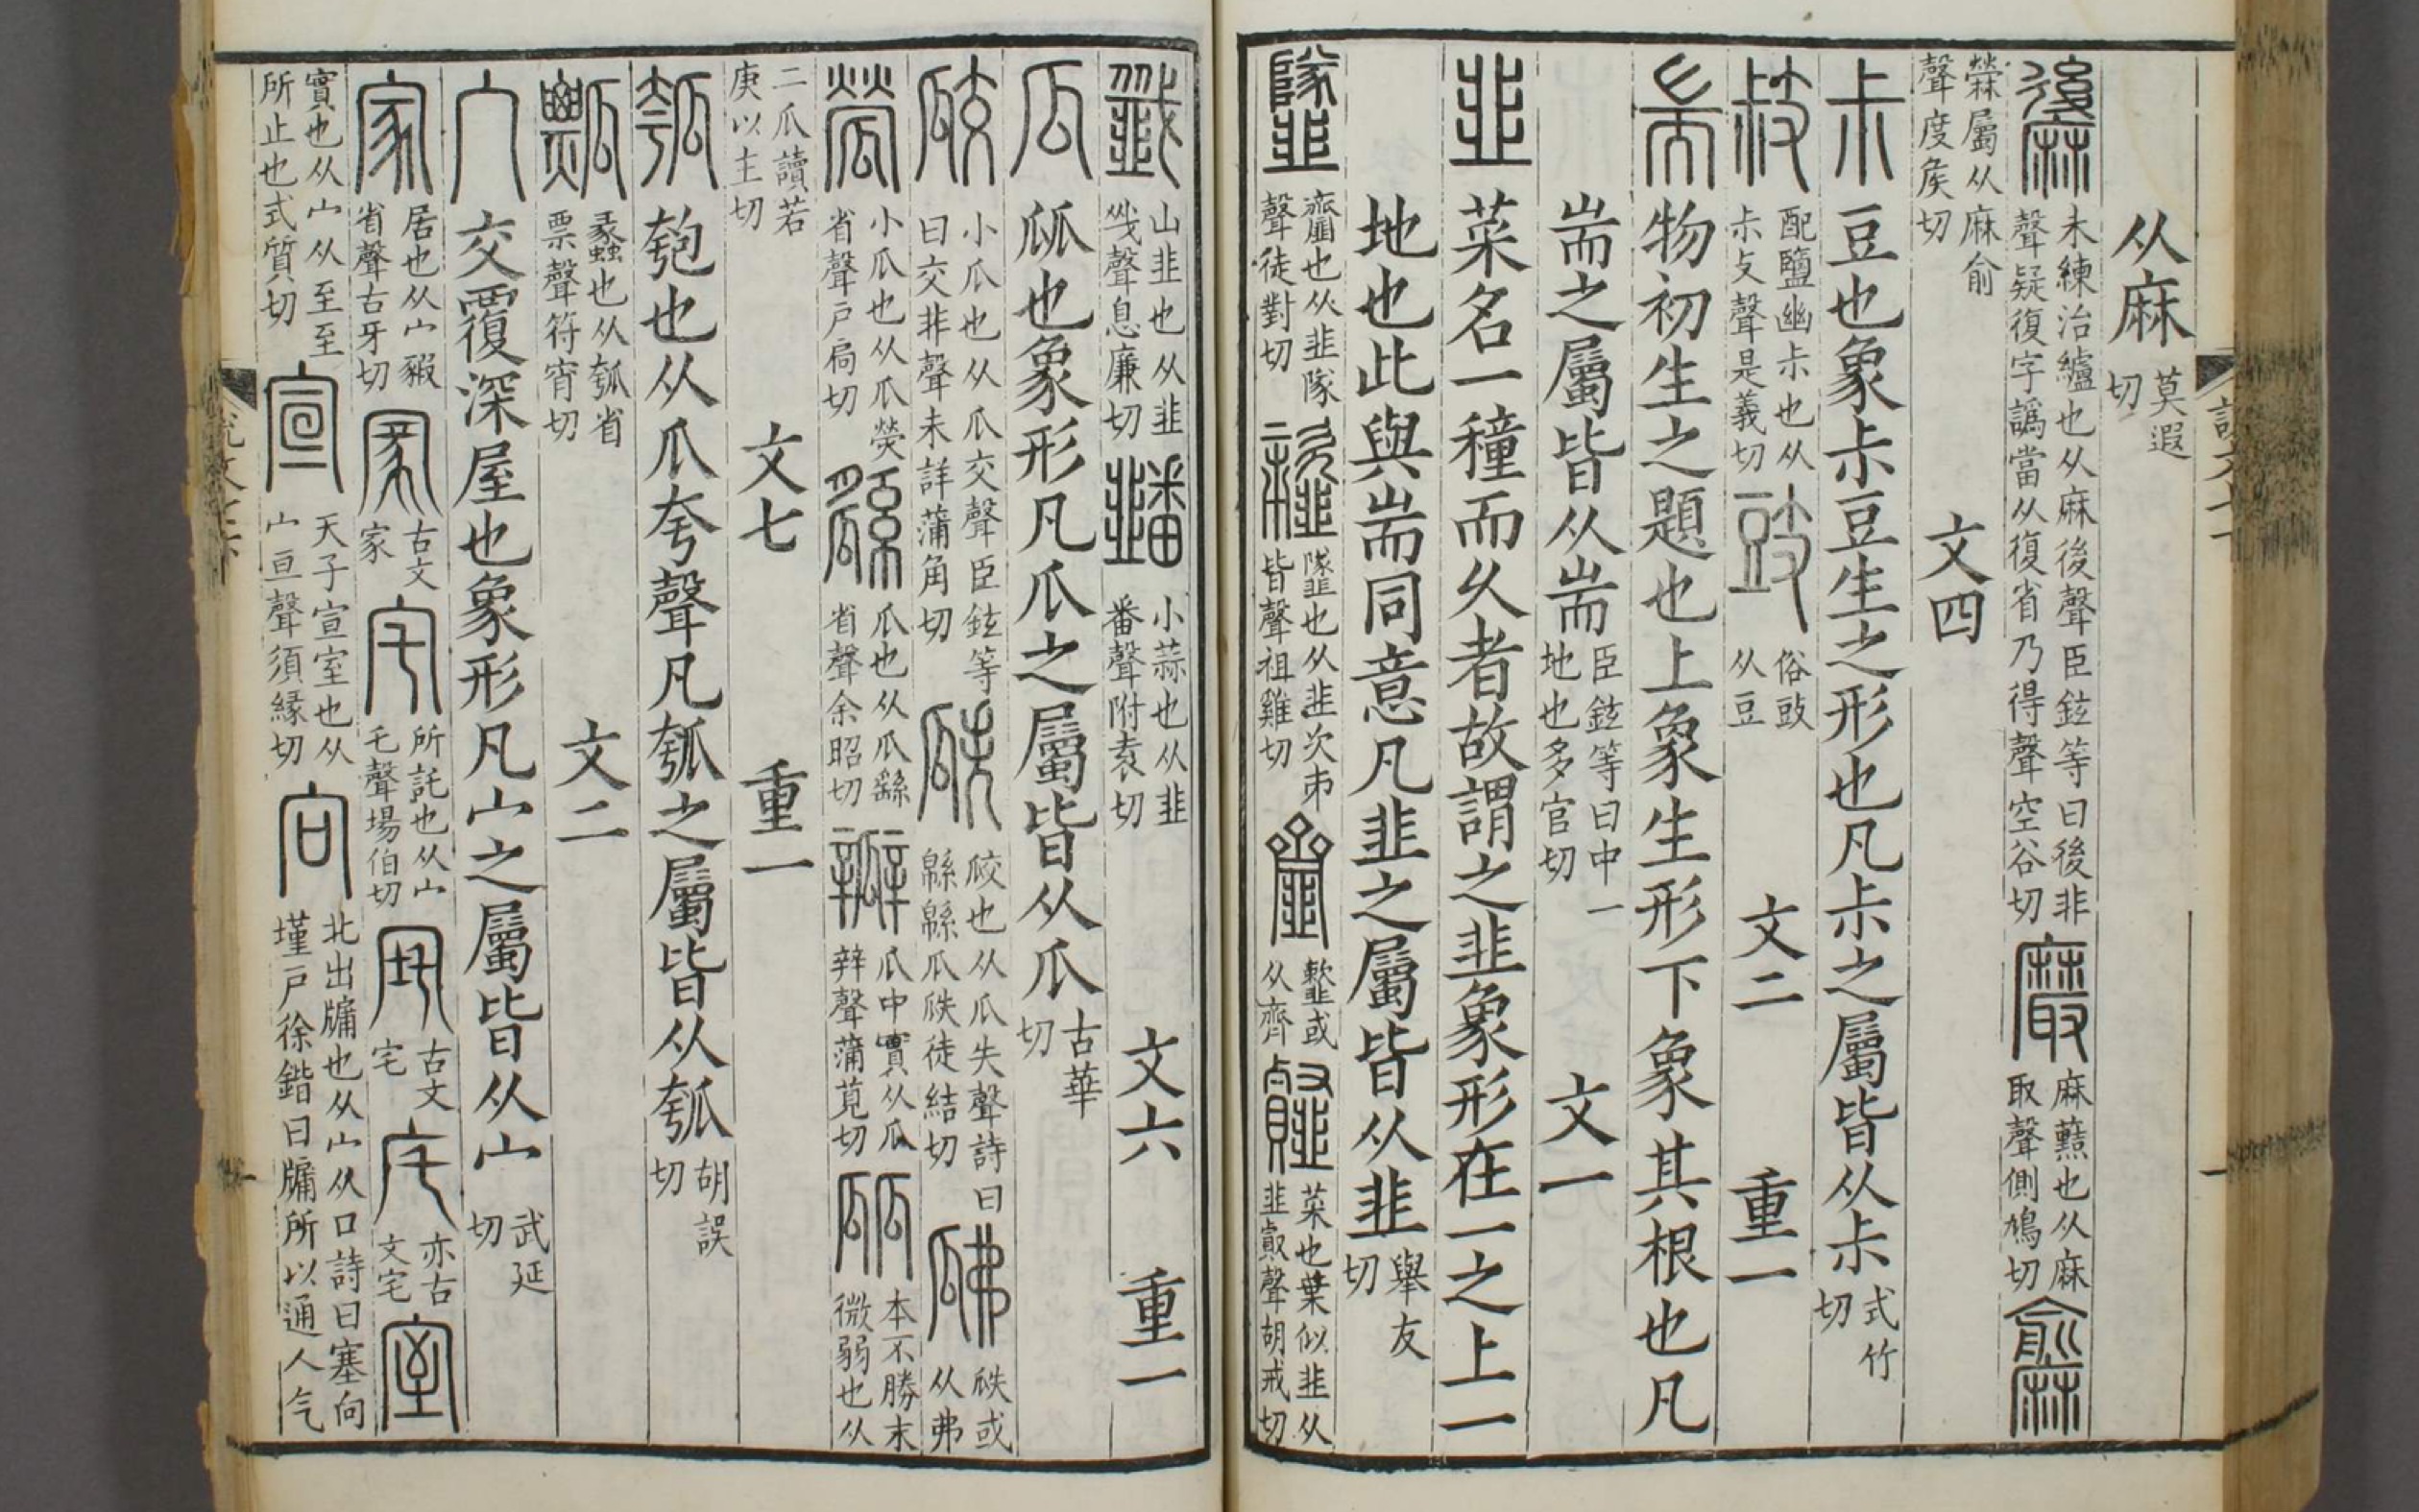 从麻莫遐切
𪎵未練治纑也从麻後聲臣鉉等曰後非聲疑復字譌當从復省乃得聲空谷切黀麻藍也从麻取聲側鳩切䵉
褮屬从麻俞聲度矦切 文四
尗豆也象尗豆生之形也凡尗之屬皆从尗式竹切
𣁋配鹽幽尗也从尗支聲是義切豉俗𣁋从豆 文二 重一
耑物初生之題也上象生形下象其根也凡
耑之屬皆从耑臣鉉等曰中一地也多官切 文一
韭菜名一種而久者故謂之韭象形在一之上一
地也此與耑同意凡韭之屬皆从韭舉友切
䪤䪢也从韭隊聲徒對切䪡䪤也从韭次𠂔皆聲祖雞切齏䪡或从齊䪥菜也葉似韭从韭㕡聲胡戒切
韱山韭也从韭㦰聲息廉切䪛小蒜也从韭番聲附袁切 文六 重一
瓜㼌也象形凡瓜之屬皆从瓜古華切
㼎小瓜也从瓜交聲臣鉉等曰交非聲未詳蒲角切瓞㼎也从瓜失聲詩曰緜緜瓜瓞徒結切𤬝瓞或从弗
𤬏小瓜也从瓜熒省聲戶扃切䌛瓜也从瓜繇省聲余昭切瓣瓜中實从瓜辡聲蒲莧切㼌本不勝末微弱也从
二瓜讀若庾以主切 文七 重一
瓠匏也从瓜夸聲凡瓠之屬皆从瓠胡誤切
瓢蠡也从瓠省票聲符宵切 文二
宀交覆深屋也象形凡宀之屬皆从宀武延切
家居也从宀豭省聲古牙切𠖔古文家宅所託也从宀乇聲場伯切㡯古文宅㡯亦古文宅室
實也从宀从至至所止也式質切宣天子宣室也从宀亘聲須緣切向北出牖也从宀从口詩曰塞向墐戶徐鍇曰牖所以通人气